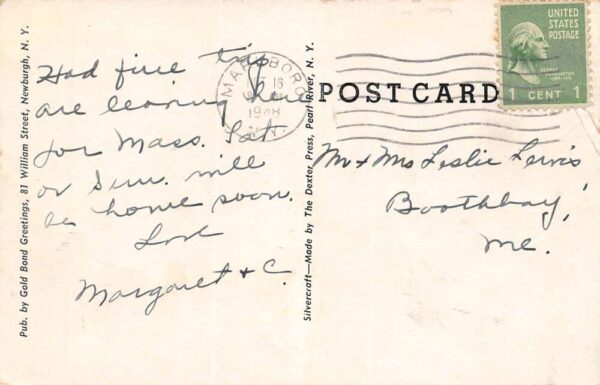 Had fine trip
are leaving here
for Mass. Sat.
or Sun. will
be home soon.
Love
Margaret & C.
Pub. by Gold Bond Greetings, 81 William Street, Newburgh, N. Y.
Silvercraft—Made by The Dexter Press, Pearl River, N. Y.
MARLBORO
16
N.Y.
POST CARD
UNITED
STATES
POSTAGE
GEORGE
WASHINGTON
1 CENT 1
Mr & Mrs Leslie Lewis
Boothbay,
Me.